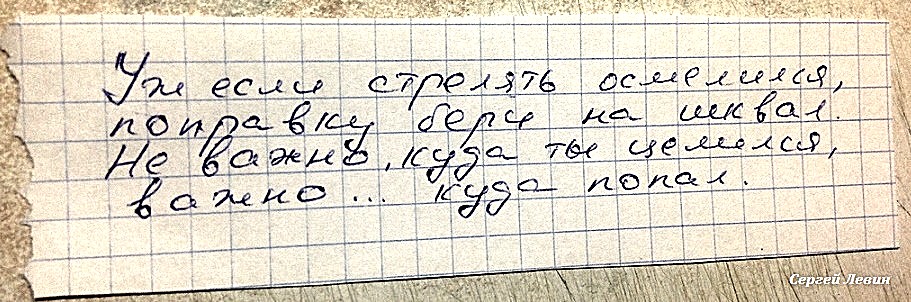 Уж если стрелять осмелился,
поправку бери на шквал.
Не важно, куда ты целился,
важно... куда попал.
Сергей Левин